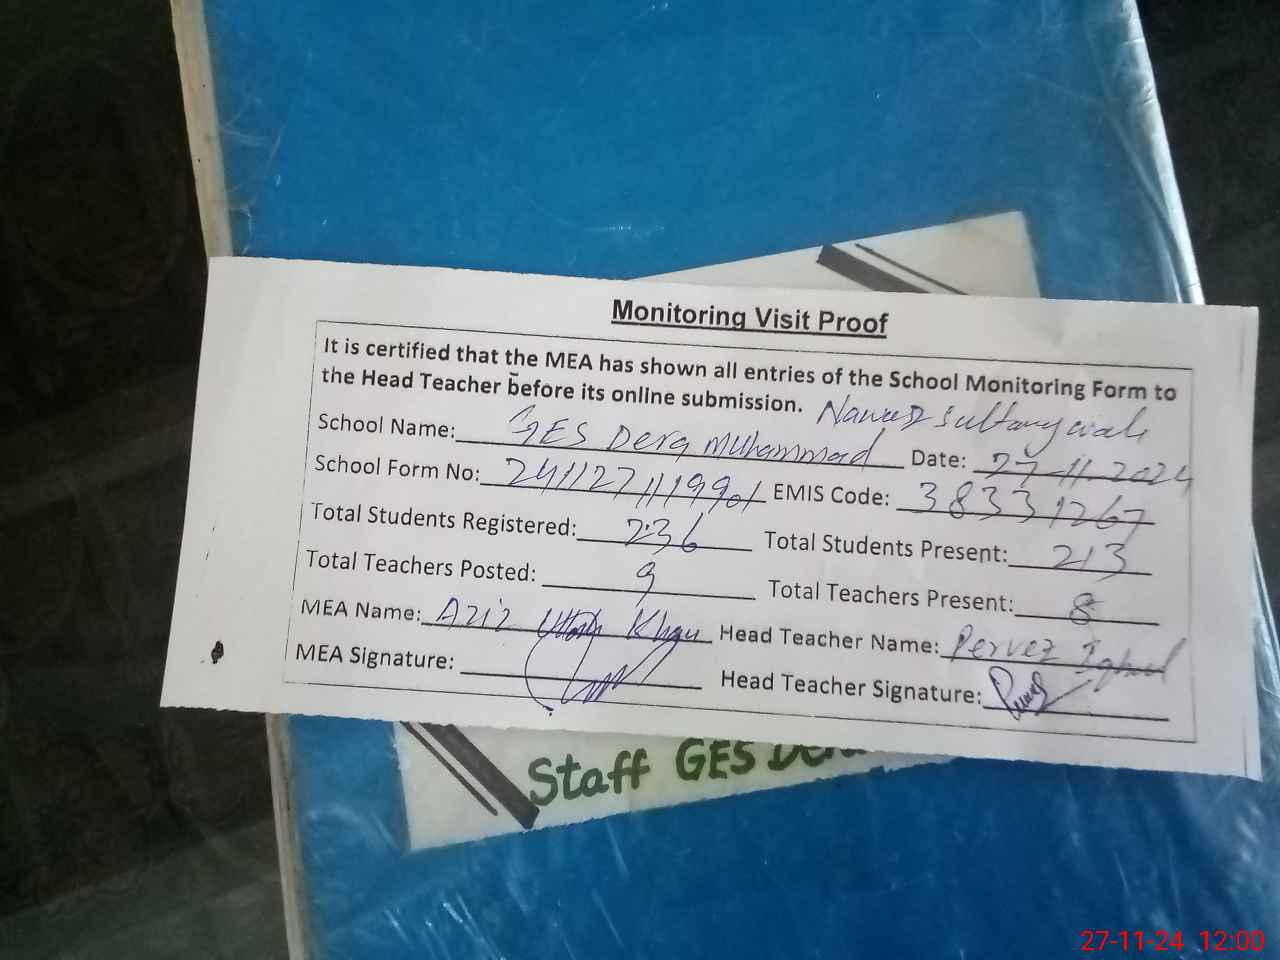 Monitoring Visit Proof
It is certified that the MEA has shown all entries of the School Monitoring Form to
the Head Teacher before its online submission.
School Name: GES Dera Muhammad Nawaz Date: 27-11-2024
School Form No: EMIS Code: 38331267
Total Students Registered: 236 Total Students Present: 213
Total Teachers Posted: 9 Total Teachers Present: 8
MEA Name: Aziz Ullah Khan Head Teacher Name: Pervez Iqbal
MEA Signature: Head Teacher Signature:
Staff GES Dera
27-11-24 12:00